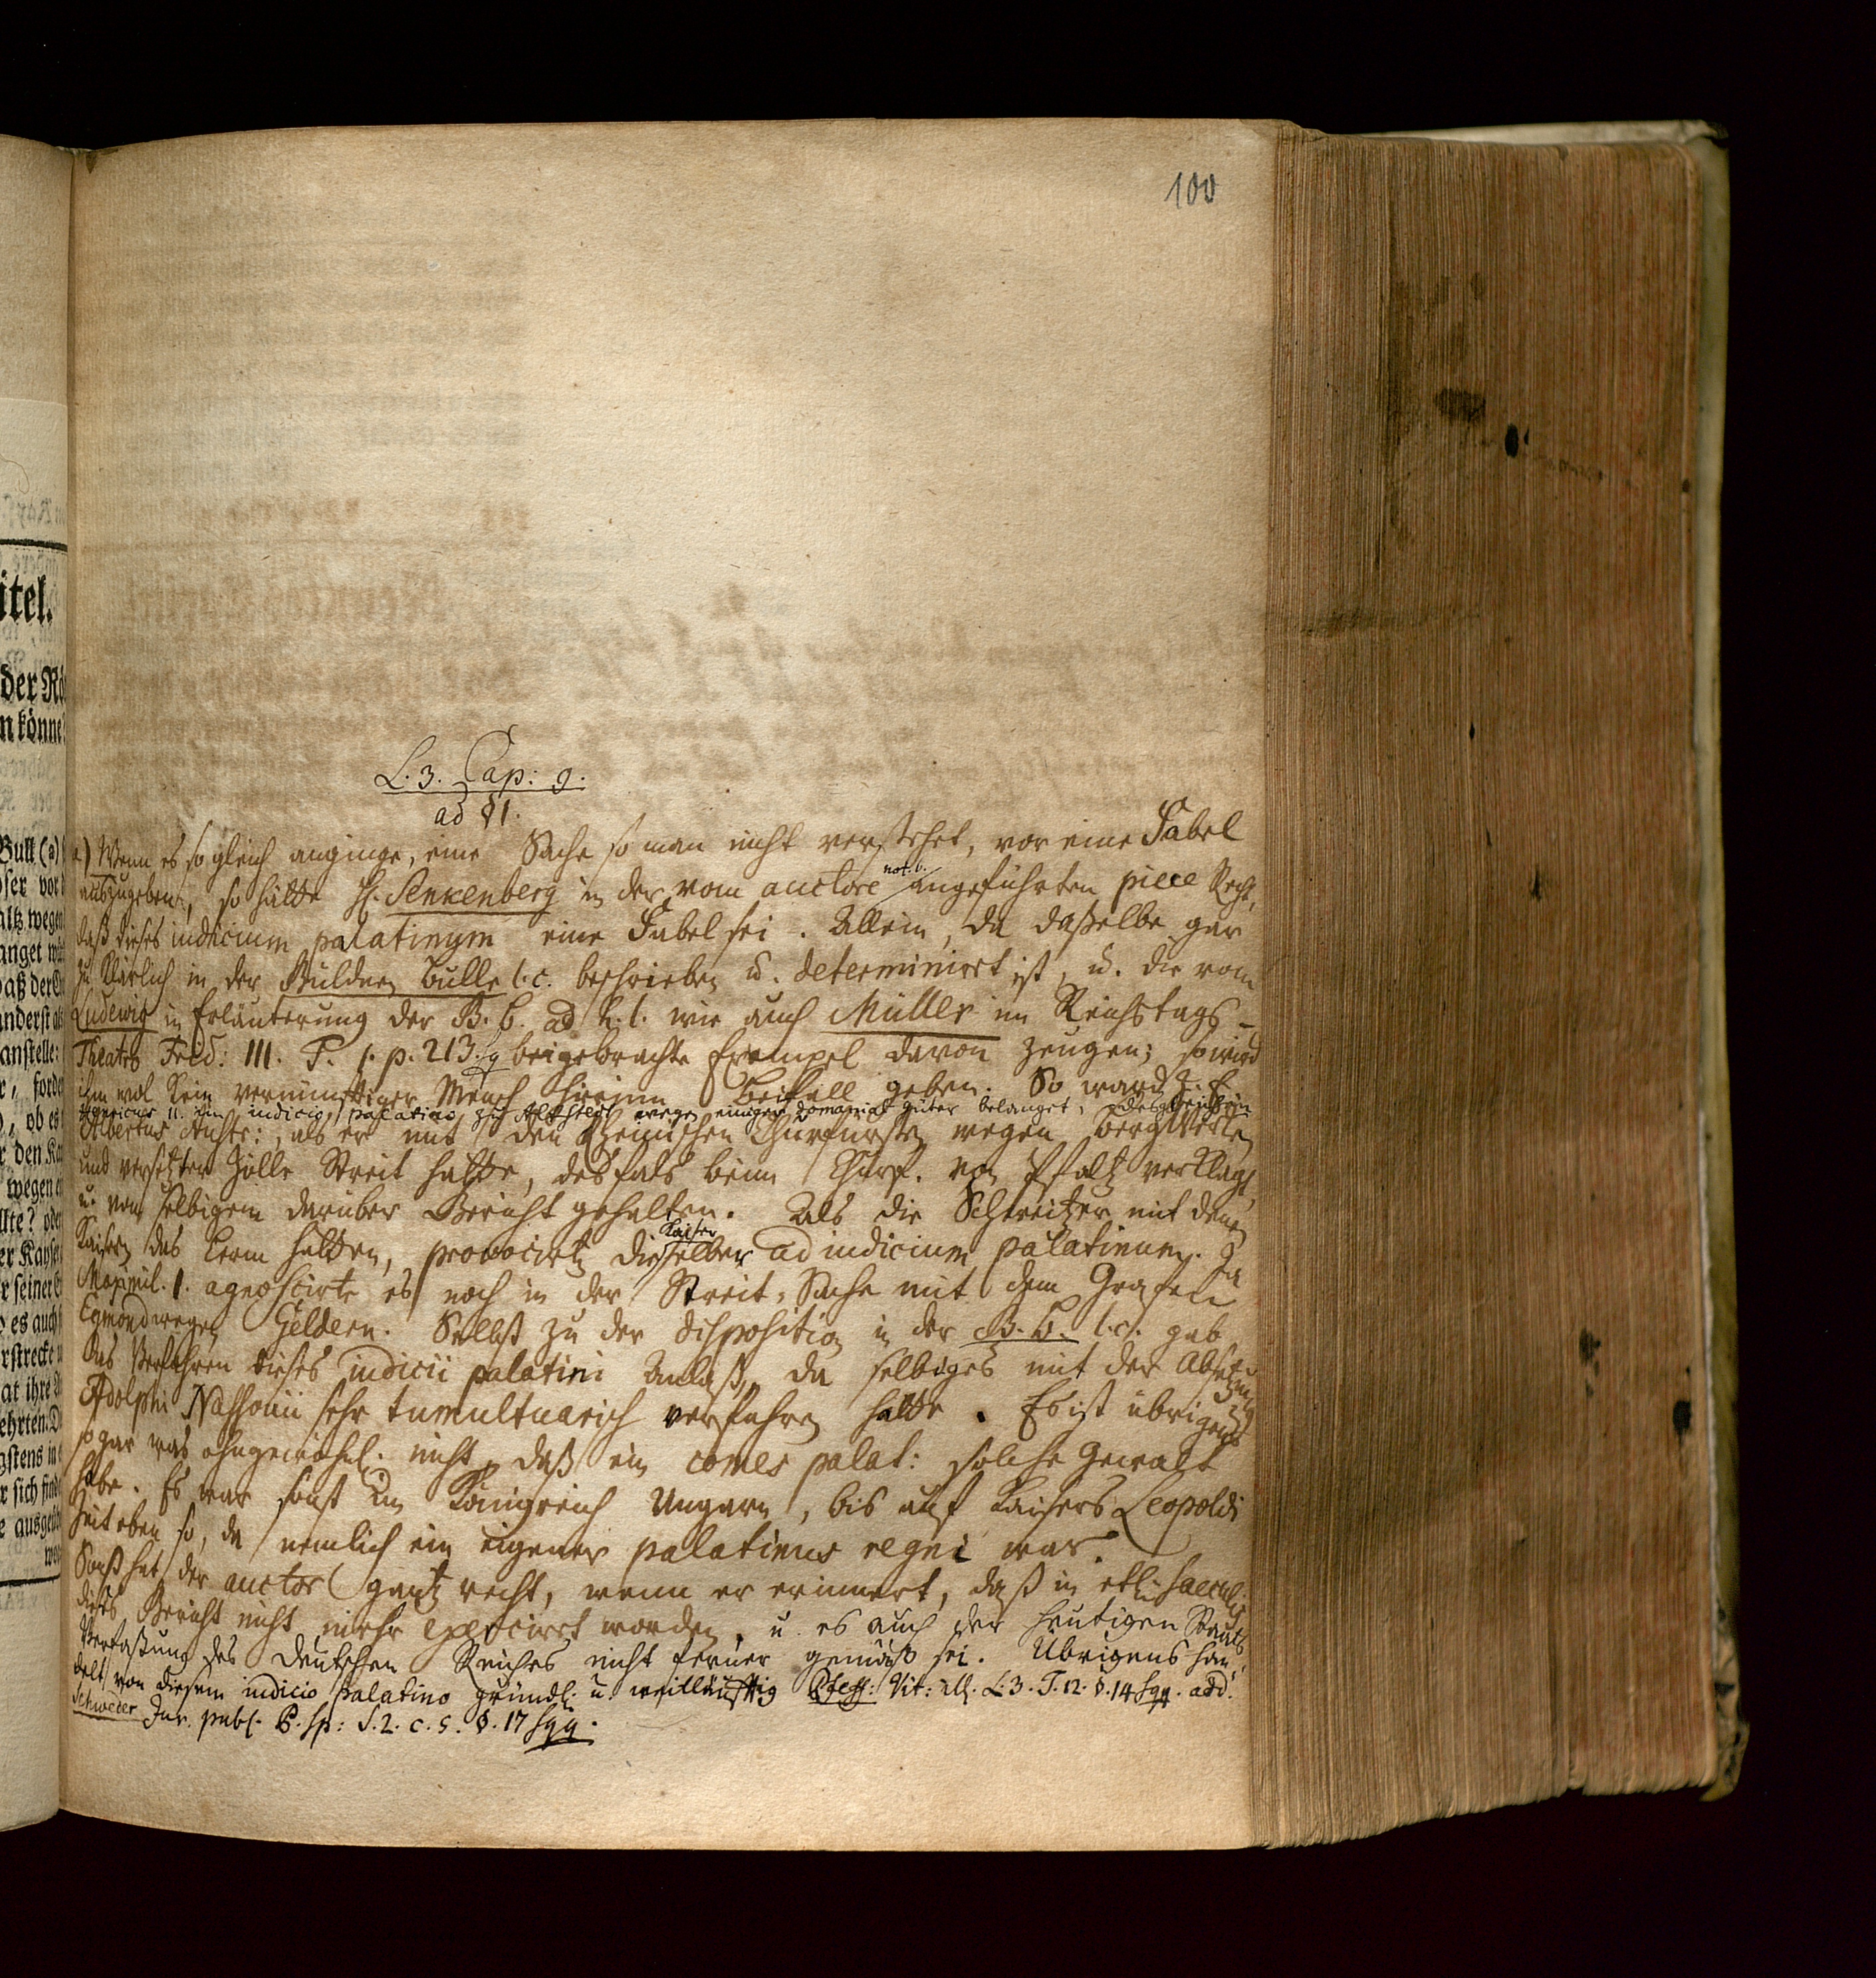 100
itel.
der Rö
n könne
Bull (a)
oser vor
altz wegen
anget
daß der
anderst
anstelle:
r, forde
, ob es
r den Ka
wegen
llte? ode
er Kayse
r seiner
es auch
rstrecke
at ihre
ehrten
gstens in
r sich find
e ausge
L. 3. Cap: 9.
ad § 1.
a) Wenn es so gleich anginge, eine Sache so man nicht verstehet, vor eine Fabel
auszugeben, so hätte H. Senkenberg in der vom auctore not. b. angeführten piece Recht,
daß dieses iudicium palatinum eine Fabel sei. Allein, da daßelbe gar
zu klärlich in der Güldnen Bulle l. c. beschrieben u. determiniert ist, u. die vom
Ludewig in Erläuterung der G. B. ad h. l. wie auch Müller im Reichstags-
Theatro Frid: III. T. 1. p. 213. sq beigebrachte Exempel davon zeugen; so wird
ihm wol kein vernünfftiger Mensch hirinn Beifall geben. So ward z. E.
wegen einiger Domanial güter belanget, desgleichen
Albertus Austr:, als er mit den Rheinischen Churfürsten wegen Bergwerken
und versetzten Zölle Streit hatte, desfals beim Churf. von Pfaltz verklagt,
u. von selbigem darüber Gericht gehalten. Als die Schweitzer mit denen
Kaisern das Lerm hatten, provocirten dieselben Kaiser ad iudicium palatinum. Ja
Maximil. I. agnoscirte es noch in der Streit-Sache mit dem Grafen
Egmond wegen Geldern. Selbst zu der disposition in der G. B. l. c. gab
das Verfahren dieses iudicii palatini Anlaß, da selbiges mit der Absetzung
Adolphi Nassovii sehr tumultuarisch verfahren hatte. Es ist übrigens
so gar was ohngewöhnl. nicht, daß ein comes palat: solche Gewalt
habe. Es war sonst im Königreich Ungarn, bis auf Kaisers Leopoldi
Zeit eben so, da nemlich ein eigener palatinus regni war.
Sonst hat der auctor gantz recht, wenn er erinnert, daß in etl. saeculis
dieß Gericht nicht mehr exercirt worden, u. es auch der heutigen Staats-
Verfaßung des Deutschen Reiches nicht ferner gemäß sei. Übrigens han-
delt von diesem iudicio palatino gründl. u. weitläufftig Pfeff: Vit: ill. L. 3. T. 12. §. 14 sqq. add.
Schweder Jur. publ. P. sp: S. 2. c. 5. §. 17 sqq.